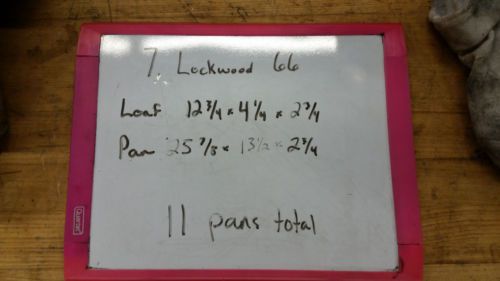 7. Lockwood 66
Loaf 12 3/4 x 4 1/4 x 2 3/4
Pan 25 7/8 x 13 1/2 x 2 3/4
11 pans total
Quartet